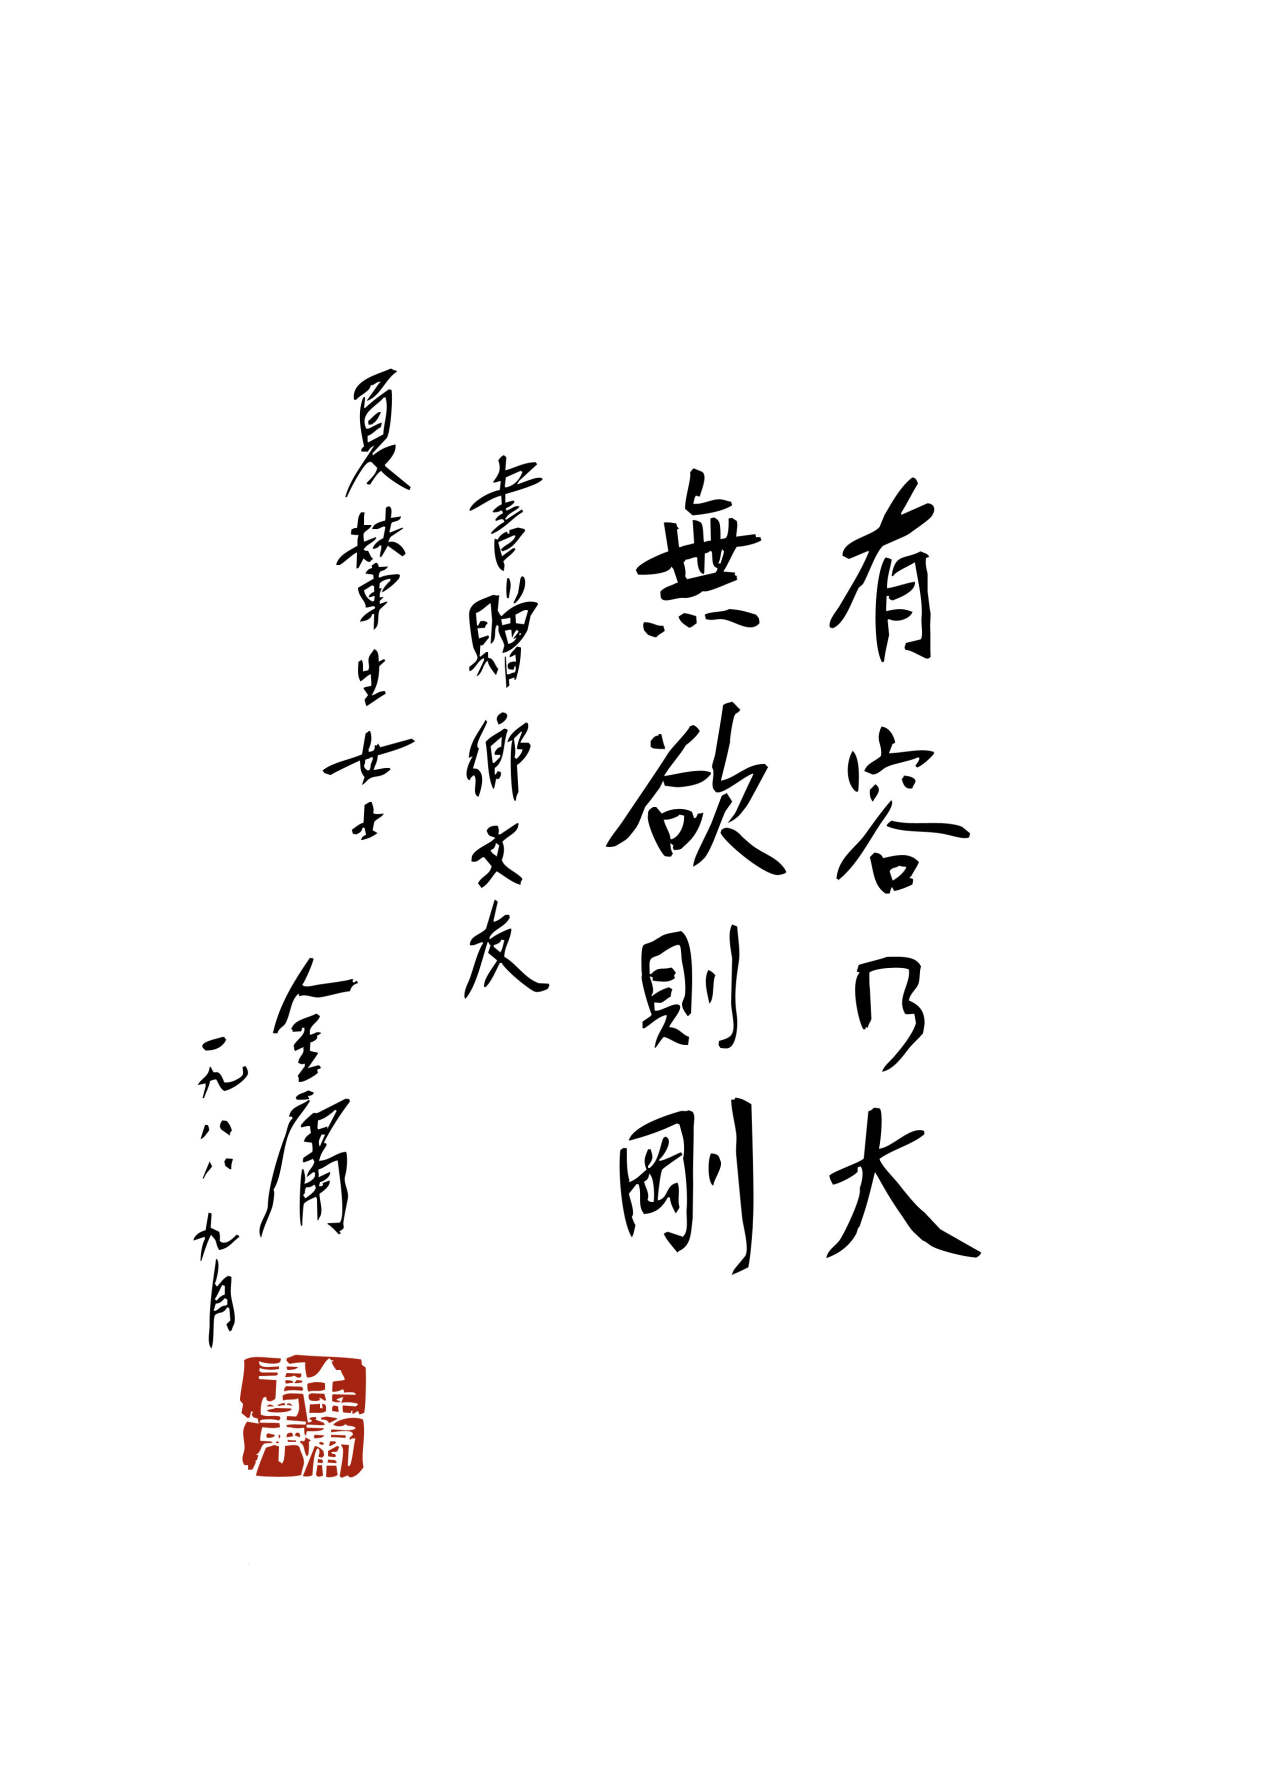 有容乃大
無欲則剛
書贈鄉文友
夏輦生女士
金庸
一九八八九月